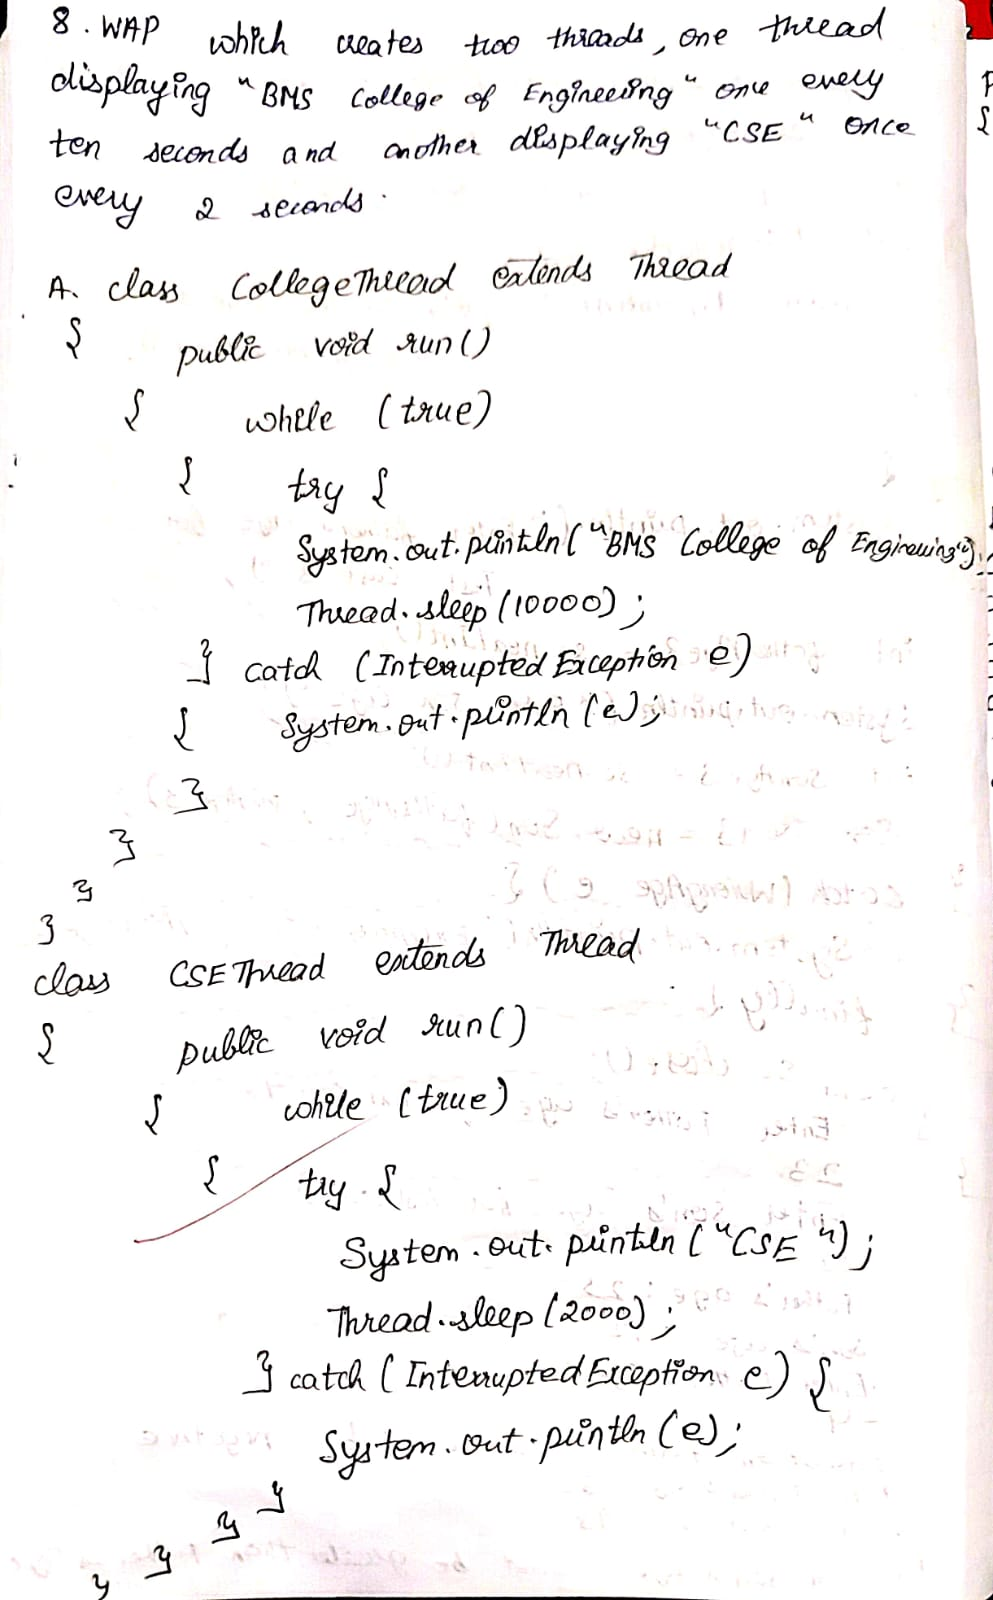 8. WAP which creates two threads, one thread
displaying "BMS College of Engineering" once every
ten seconds and another displaying "CSE" once
every 2 seconds.
A. class CollegeThread extends Thread
{ public void run()
{ while (true)
{ try {
System.out.println("BMS College of Engineering");
Thread.sleep(10000);
} catch (Interrupted Exception e)
{ System.out.println(e);
}
}
}
}
class CSEThread extends Thread
{ public void run()
{ while (true)
{ try {
System.out.println("CSE");
Thread.sleep(2000);
} catch (InterruptedException e) {
System.out.println(e);
}
}
}
}